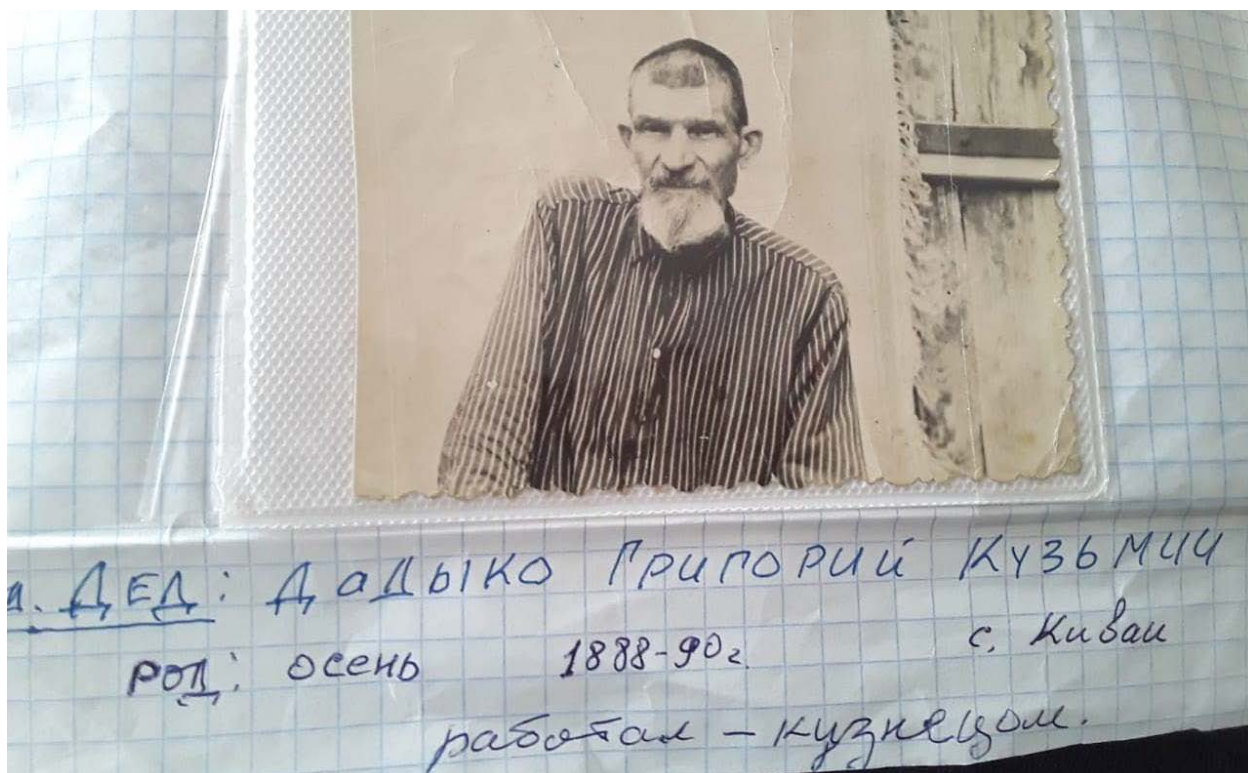 а. ДЕД: ДАДЫКО ГРИГОРИЙ КУЗЬМИЧ
РОД: осень 1888-90г. с. Киваи
работал – кузнецом.